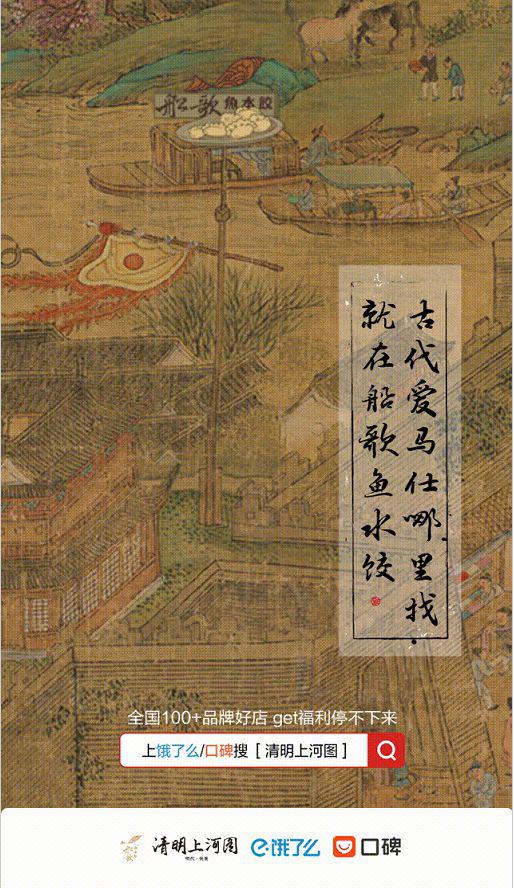 船歌魚水餃
古代爱马仕哪里找
就在船歌鱼水饺
全国100+品牌好店 get福利停不下来
上饿了么/口碑搜 [ 清明上河图 ]
清明上河图
饿了么
口碑